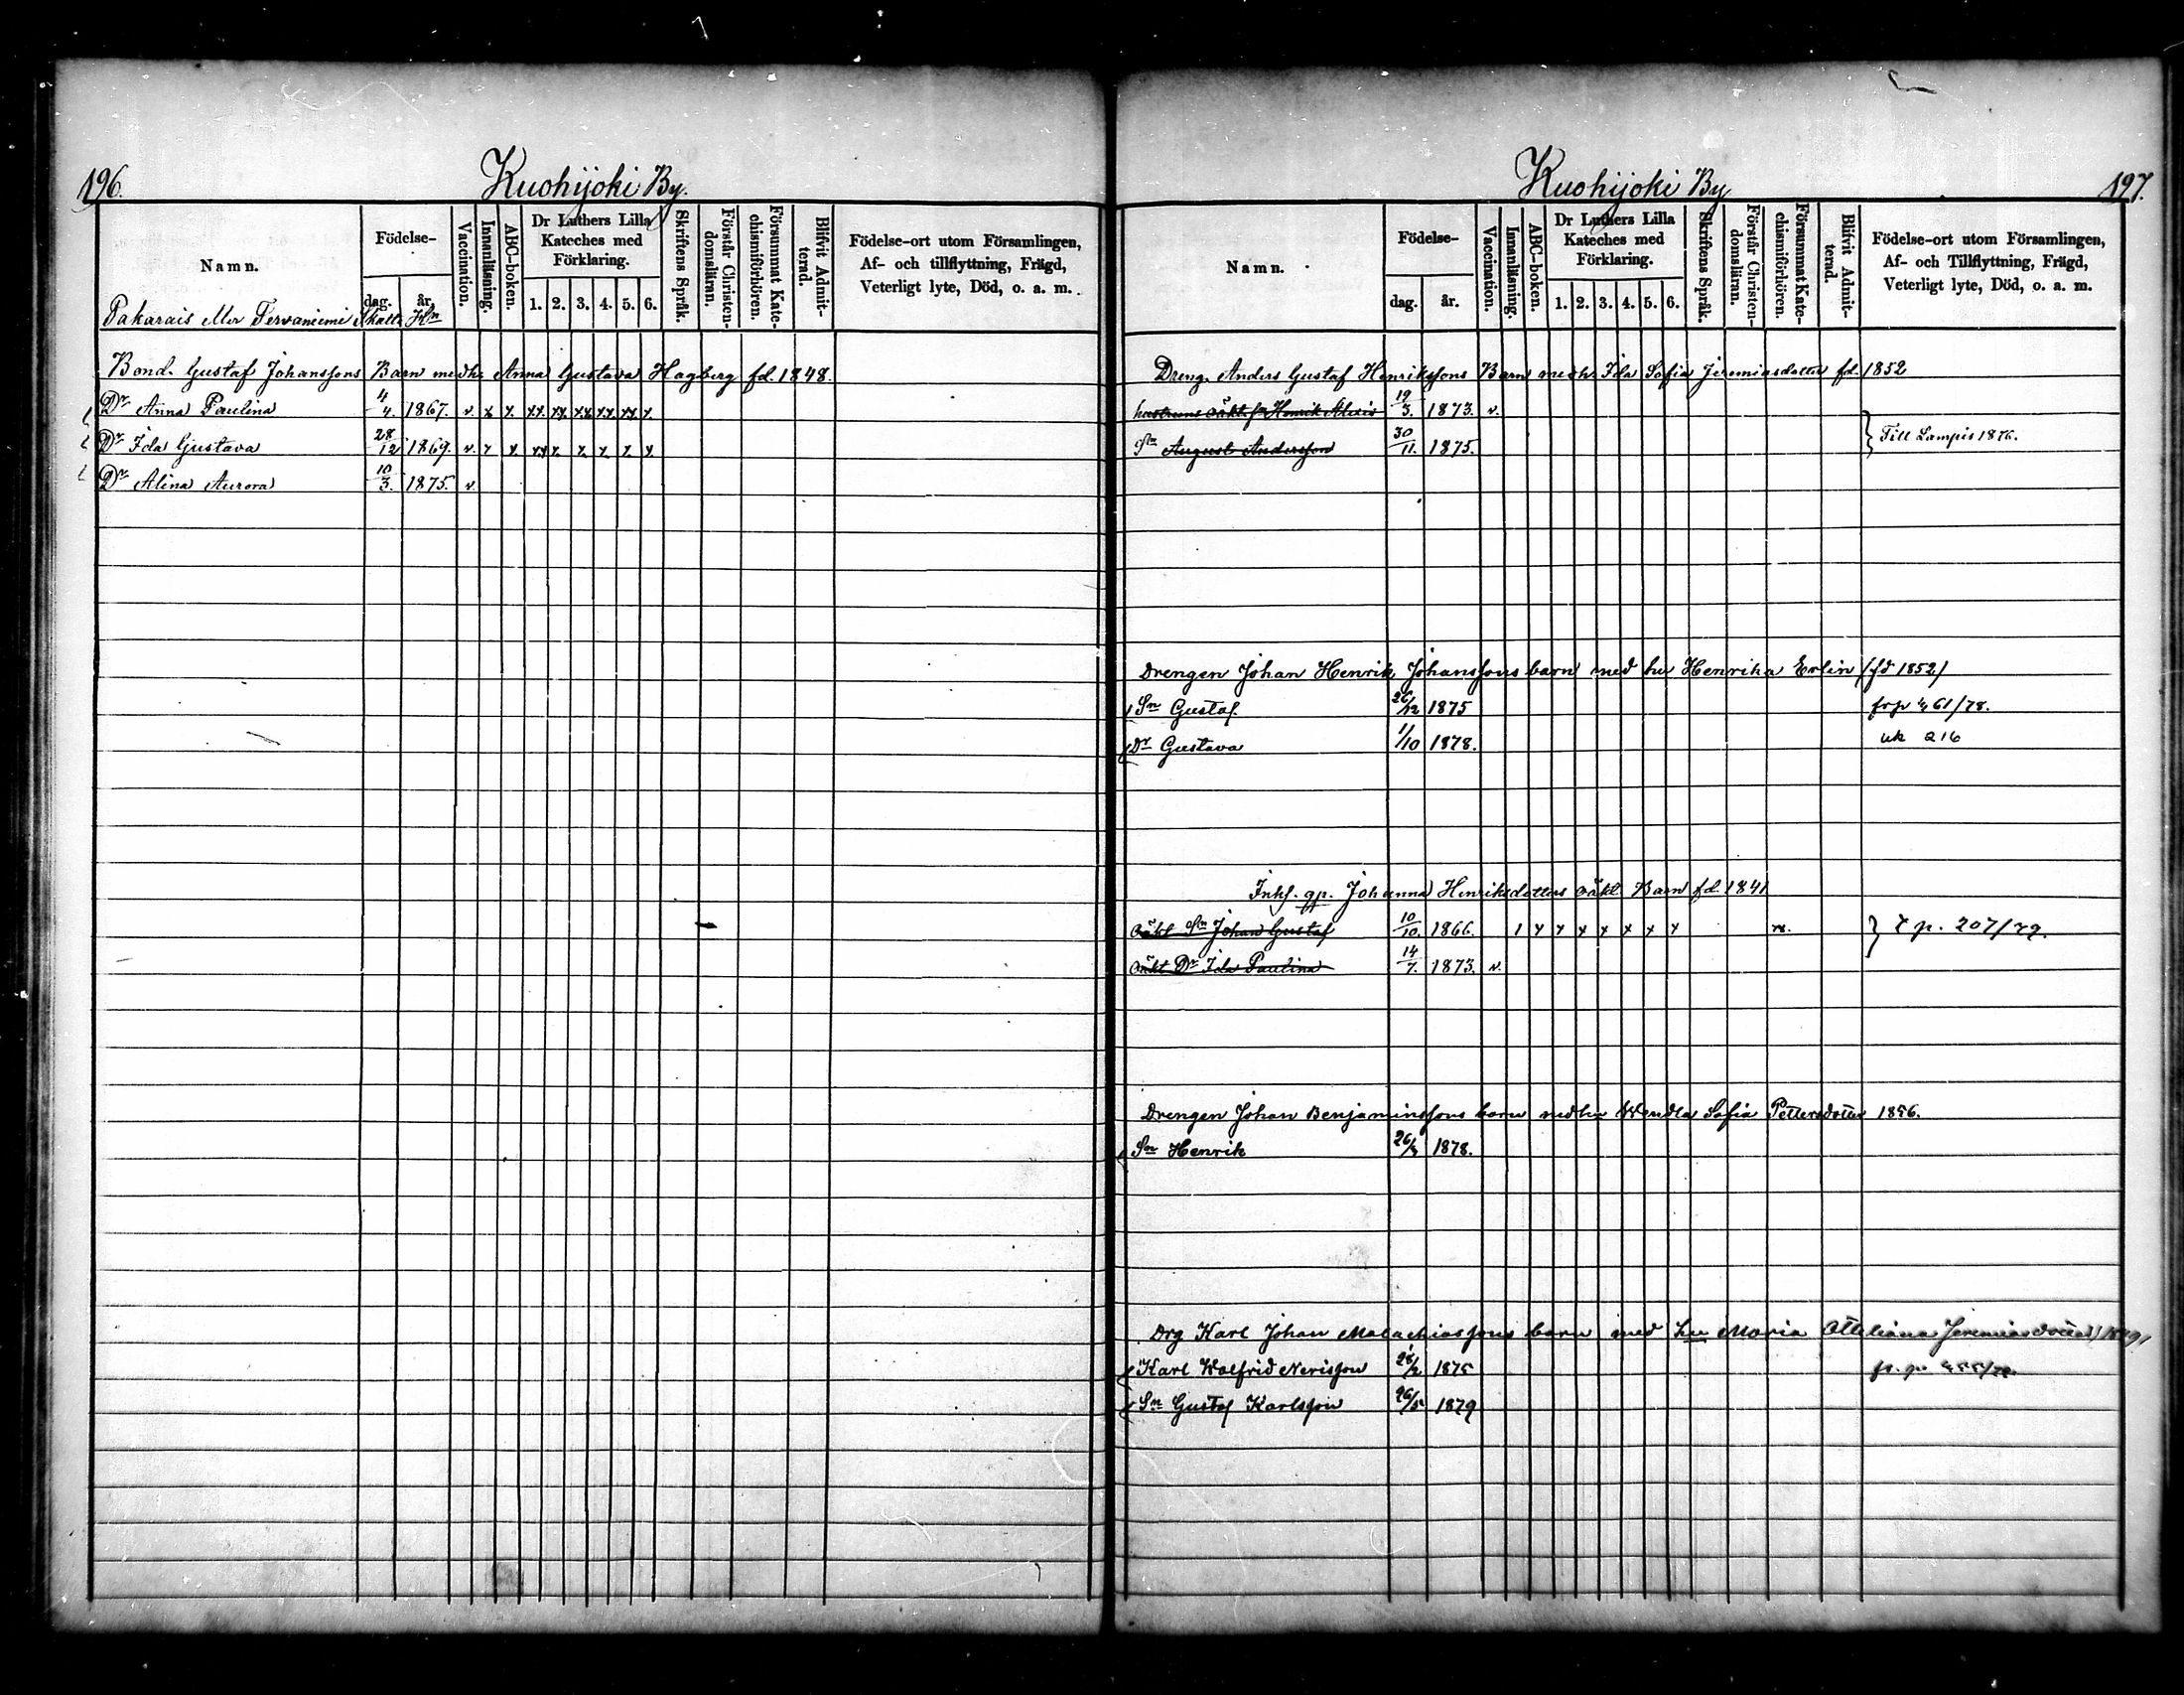 196.
Kuohijoki By.
Namn.
Födelse-
dag.
år.
Vaccination.
Innanläsning.
ABC-boken.
Dr Luthers Lilla
Kateches med
Förklaring.
1. 2. 3. 4. 5. 6.
Skriftens Språk.
Förstår Christen-
domsläran.
Försummat Kate-
chismiförhören.
Blifvit Admit-
terad.
Födelse-ort utom Församlingen,
Af- och tillflyttning, Frägd,
Veterligt lyte, Död, o. a. m.
Pakarais eller Tervaniemi Skatte Hn
Bond. Gustaf Johanssons Barn medh. Anna Gustava Hagberg fd. 1848.
Dr Anna Paulina 4/4. 1867. v. x x. xx. xx. xx xx xx x.
Dr Ida Gustava 28/12 1869. v. x x xx x. x. x. x. x.
Dr Alina Aurora 10/3. 1875. v.
197.
Kuohijoki By
Namn.
Födelse-
dag.
år.
Vaccination.
Innanläsning.
ABC-boken.
Dr Luthers Lilla
Kateches med
Förklaring.
1. 2. 3. 4. 5. 6.
Skriftens Språk.
Förstår Christen-
domsläran.
Försummat Kate-
chismiförhören.
Blifvit Admit-
terad.
Födelse-ort utom Församlingen,
Af- och Tillflyttning, Frägd,
Veterligt lyte, Död, o. a. m.
Dreng. Anders Gustaf Henrikssons Barn medh. Ida Sofia Jeremiasdotter fd. 1852
hustruns oäkt. sn Henrik Alexis 19/3. 1873. v.
Sn August Andersson 30/11. 1875. } Till Lampis 1876.
Drengen Johan Henrik Johanssons barn med hu Henrika Erlin (fd 1852)
Sn Gustaf. 26/12 1875
61/78.
Dr Gustava 1/10 1878.
216
Inhs. qp. Johanna Henriksdotters oäkt. Barn fd. 1841
oäkt Sn Johan Gustaf 10/10. 1866. 1 x x x x x x x } p. 207/79.
oäkt Dr Ida Paulina 14/7. 1873. v.
Drengen Johan Benjaminssons barn medhu Wendla Sofia Pettersdotter 1856.
Sn Henrik 1878.
Drg Karl Johan Malachiassons barn med hu Maria Ottiliana Jeremiasdotter
Karl Wolfrid Nerisson 1875
Sn Gustaf Karlsson 26/5 1879